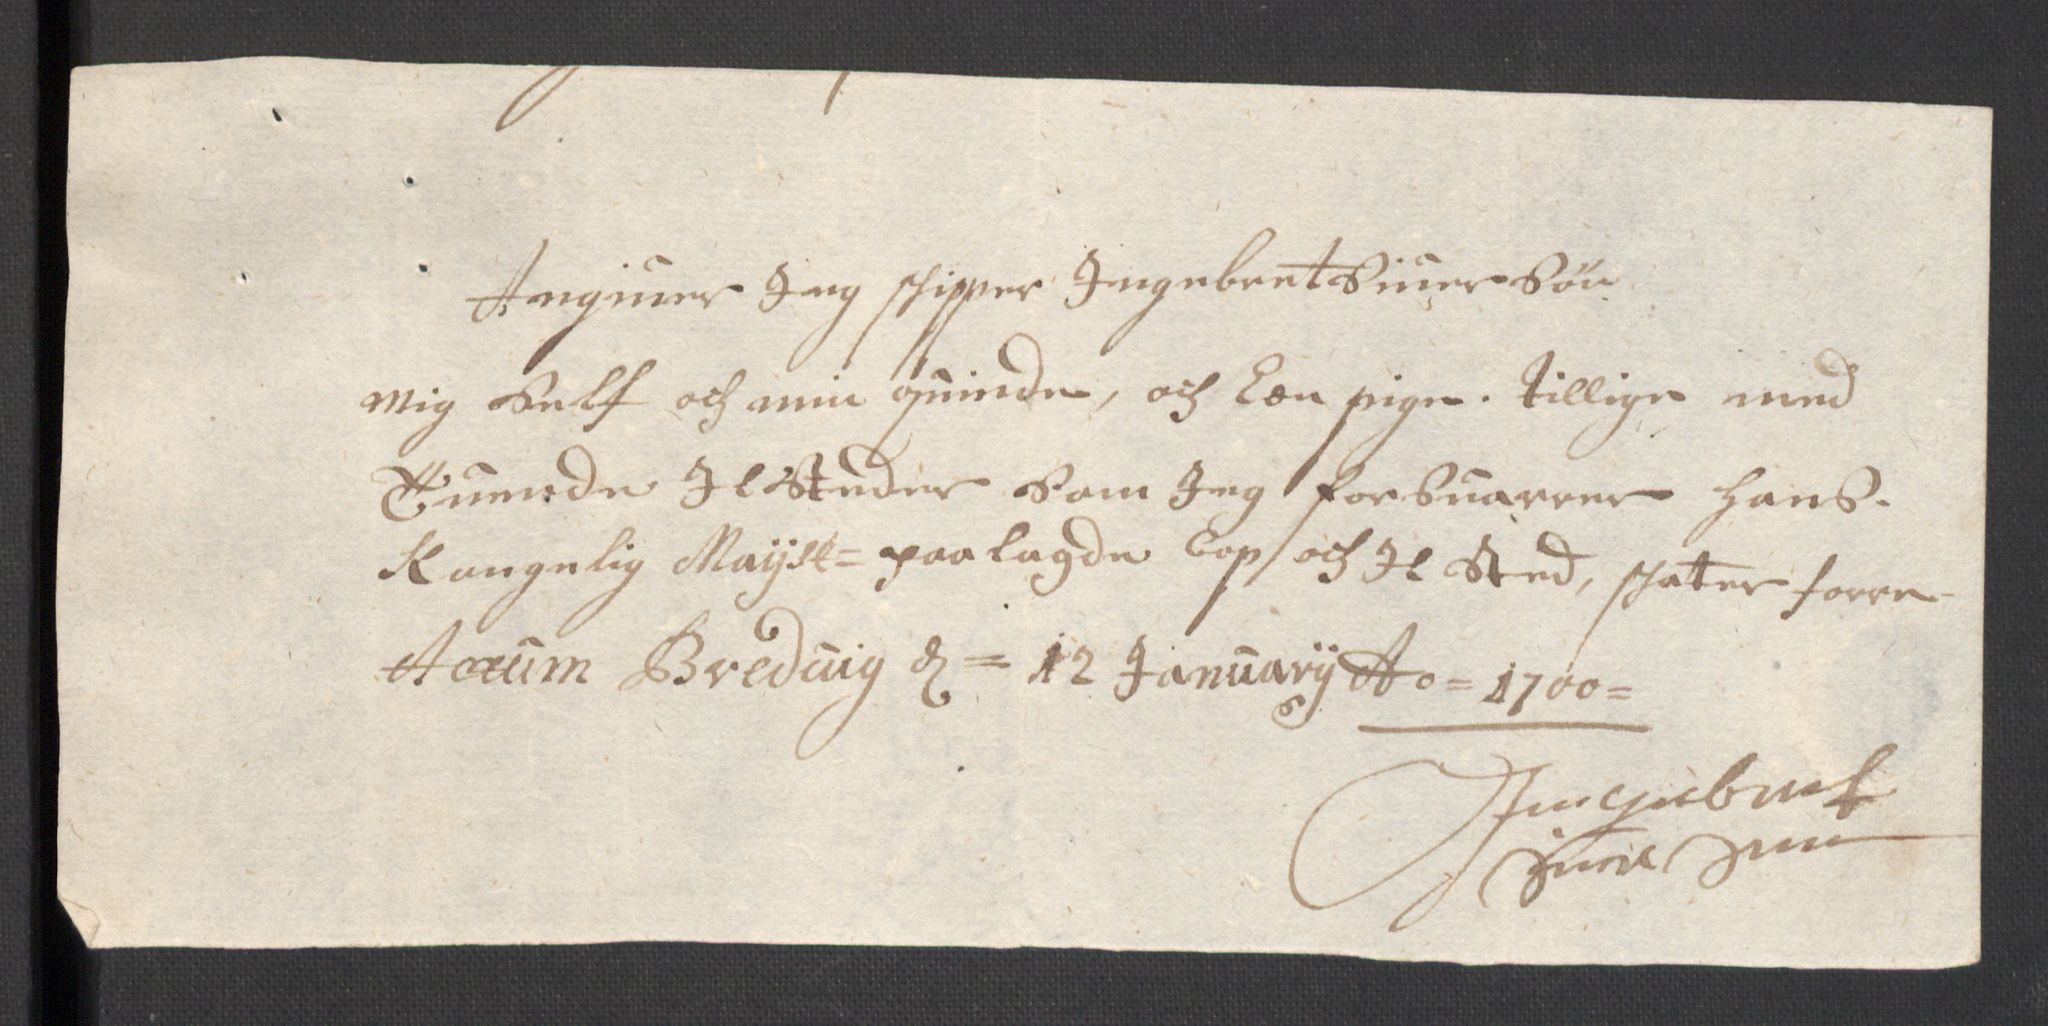 Angiuer Jeg schipper Ingebret Siuer Søn
mig Self och min quinde, och Een pige. tillige med
Tuende Ilsteder Som Jeg forsuarrer Hans.
Kongelig Mayst= paalagde Cop och Il Sted, schater forre
Actum Breduig d= 12 Januarij Ao= 1700=
Ingebret